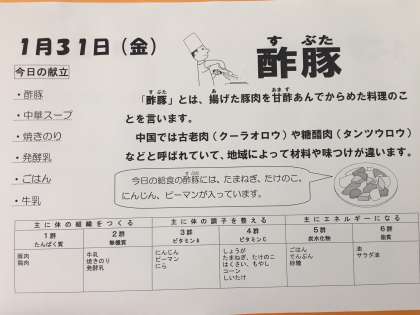 1月31日（金）
酢豚
す ぶた
今日の献立
・酢豚
・中華スープ
・焼きのり
・発酵乳
・ごはん
・牛乳
「酢豚」とは、揚げた豚肉を甘酢あんでからめた料理のこ
とを言います。
中国では古老肉（クーラオロウ）や糖醋肉（タンツウロウ）
などと呼ばれていて、地域によって材料や味つけが違います。
今日の給食の酢豚には、たまねぎ、たけのこ、
にんじん、ピーマンが入っています。
主に体の組織をつくる 主に体の調子を整える 主にエネルギーになる
1群 2群 3群 4群 5群 6群
たんぱく質 無機質 ビタミンA ビタミンC 炭水化物 脂質
豚肉 牛乳 にんじん しょうが ごはん 油
鶏肉 焼きのり ピーマン たまねぎ、たけのこ でんぷん サラダ油
発酵乳 にら はくさい、もやし 砂糖
コーン
しいたけ